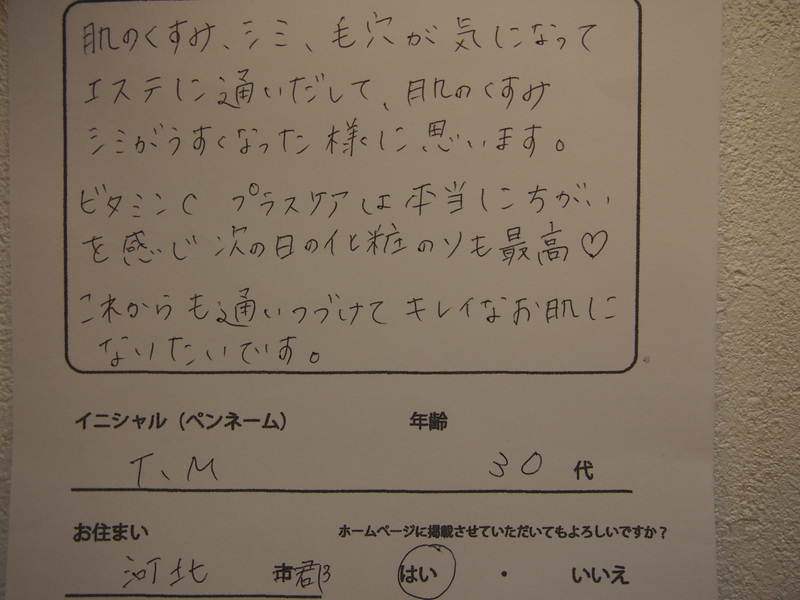 肌のくすみ、シミ、毛穴が気になって
エステに通いだして、肌のくすみ
シミがうすくなった様に思います。
ビタミンC プラスケアは本当にちがい
を感じ次の日の化粧のソも最高♡
これからも通いつづけてキレイなお肌に
なりたいです。
イニシャル（ペンネーム） 年齢
T、M 30代
お住まい ホームページに掲載させていただいてもよろしいですか？
河北 市郡 はい ・ いいえ